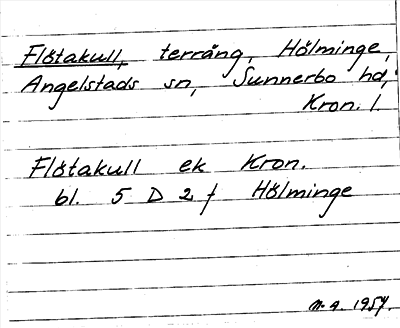 Flötakull, terräng, Hölminge,
Angelstads sn, Sunnerbo hd,
Kron. l.
Flötakull ek Kron.
bl. 5 D 2 f Hölminge
1954.